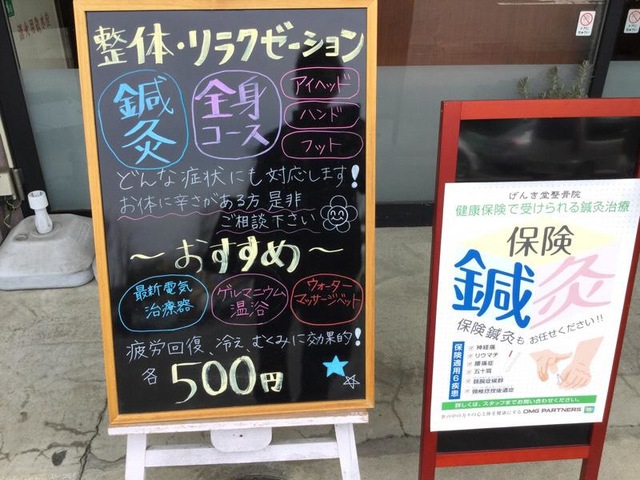 整体・リラクゼーション
鍼灸
全身コース
アイヘッド
ハンド
フット
どんな症状にも対応します!
お体に辛さがある方是非
ご相談下さい
～おすすめ～
最新電気
治療器
ゲルマニウム
温浴
ウォーター
マッサージベット
疲労回復、冷え、むくみに効果的!
各500円
げんき堂整骨院
健康保険で受けられる鍼灸治療
保険
鍼灸
保険鍼灸もお任せください!!
保険適用6疾患
神経痛
リウマチ
腰痛症
五十肩
頚腕症候群
頚椎捻挫後遺症
詳しくは、スタッフまでお問い合わせください!
世の中の方々の心と体を健康にする GMG PARTNERS